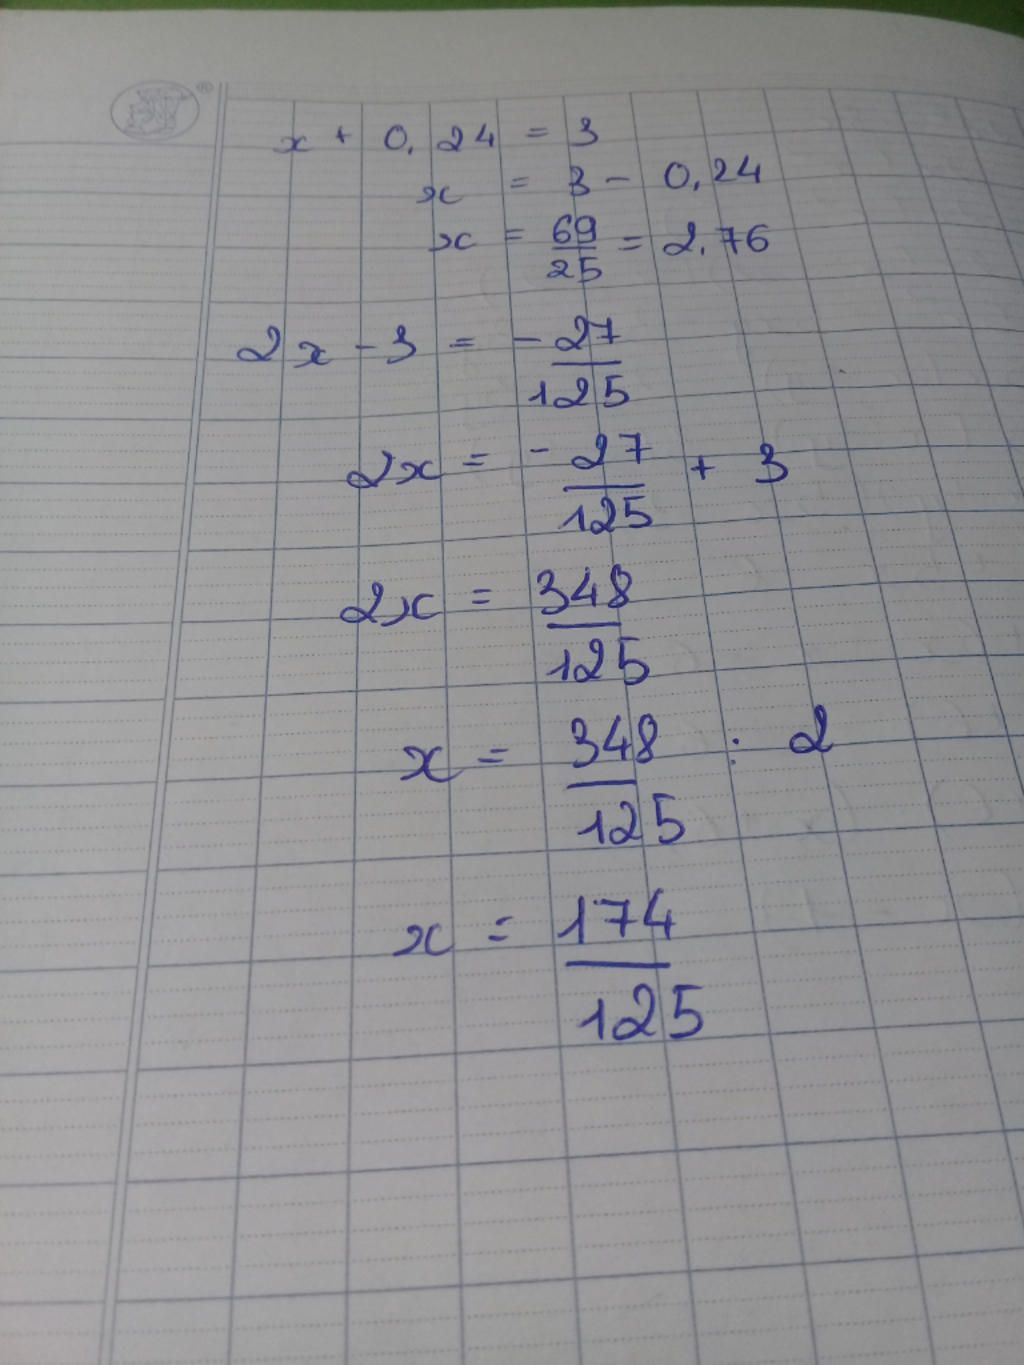 x + 0,24 = 3
x = 3 - 0,24
x = 69/25 = 2,76
2x - 3 = - 27/125
2x = - 27/125 + 3
2x = 348/125
x = 348/125 : 2
x = 174/125